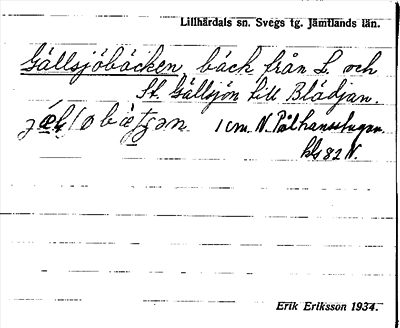 Lillhärdals sn. Svegs tg. Jämtlands län.
Gällsjöbäcken bäck från L. och
St. Gällsjön till Blädjan.
1 cm. N. Pålhansstugan
bls 82 N.
Erik Eriksson 1934.